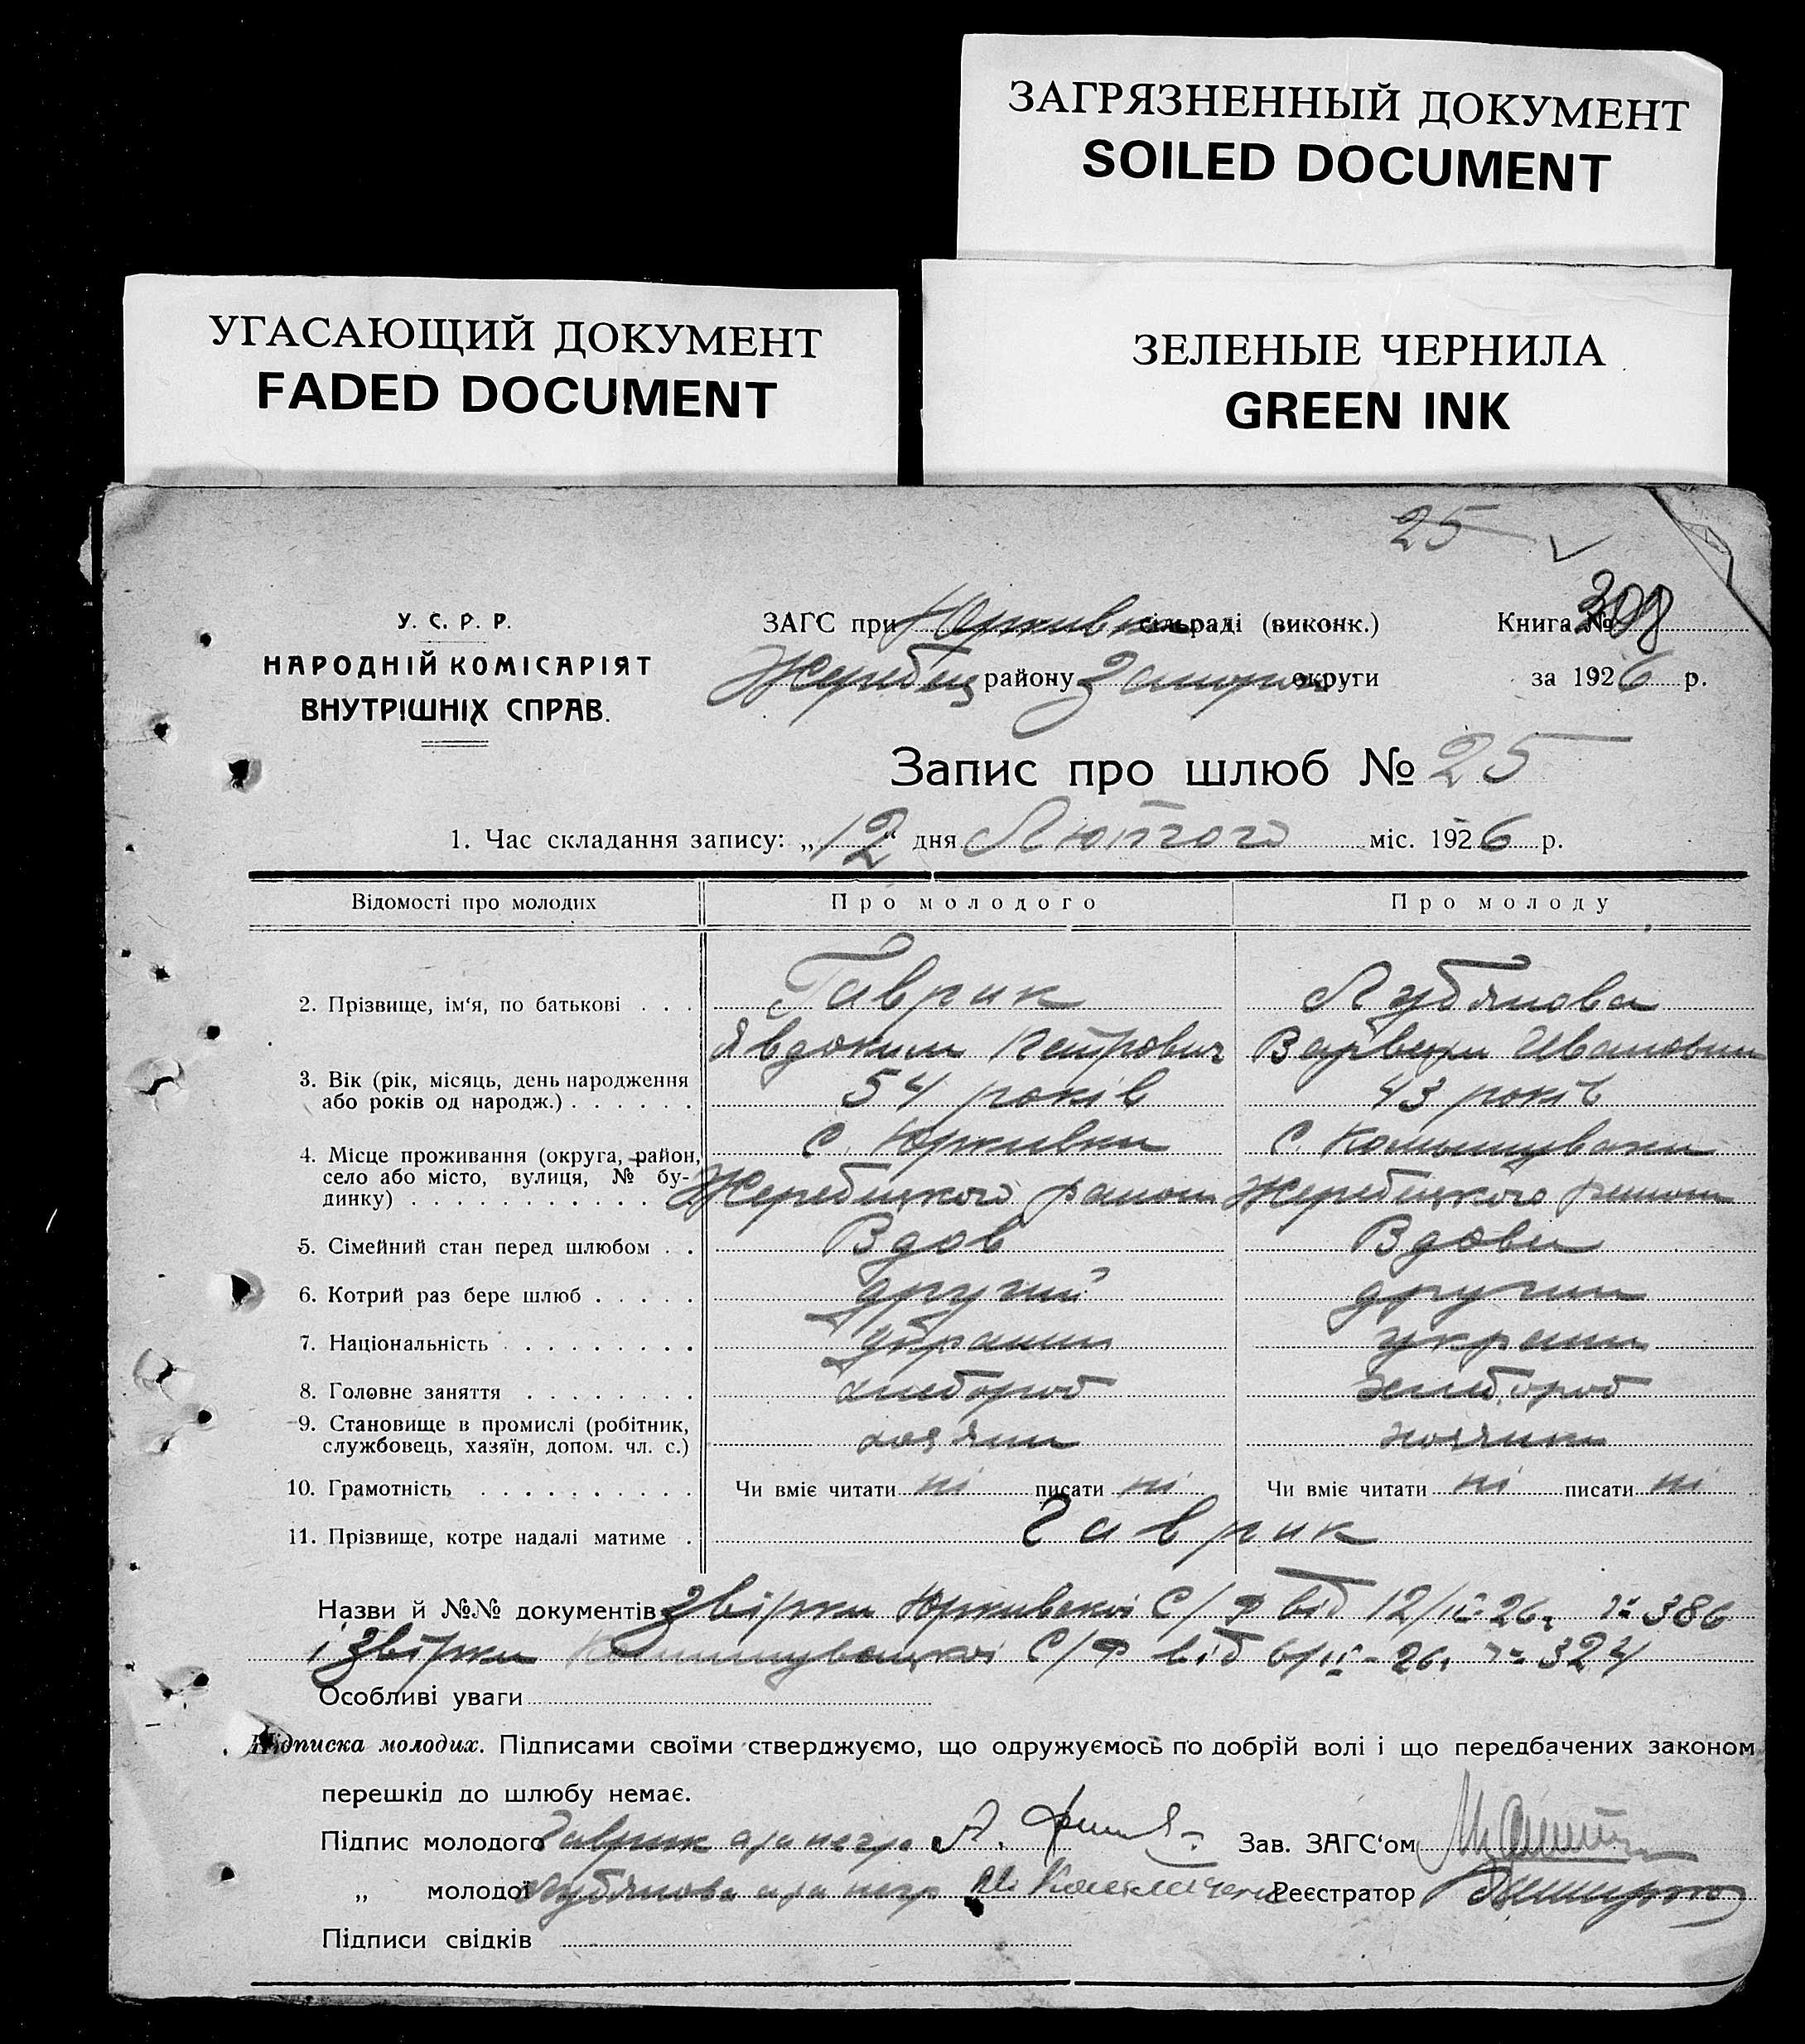 ЗАГРЯЗНЕННЫЙ ДОКУМЕНТ
SOILED DOCUMENT
УГАСАЮЩИЙ ДОКУМЕНТ
FADED DOCUMENT
ЗЕЛЕНЫЕ ЧЕРНИЛА
GREEN INK
25
У. С. Р. Р.
НАРОДНІЙ КОМІСАРІЯТ
ВНУТРІШНІХ СПРАВ.
ЗАГС при сільраді (виконк.) Книга №
Жеребец району Запорож округи за 1926 р.
Запис про шлюб № 25
1. Час складання запису: „12“ дня Лютого міс. 1926 р.
Відомості про молодих Про молодого Про молоду
2. Прізвище, ім'я, по батькові . . . Гаврик Лубянова
Явдоким Петрович Варвара Ивановна
3. Вік (рік, місяць, день народження
або років од народж.) . . . . . . 54 років 43 років
4. Місце проживання (округа, район, с. Юркивка с. Комишуваха
село або місто, вулиця, № бу-
динку) . . . . . . . . . . . Жеребецкого району Жеребецкого району
5. Сімейний стан перед шлюбом . . Вдов Вдова
6. Котрий раз бере шлюб . . . . . другий другий
7. Національність . . . . . . . . . україн україн
8. Головне заняття . . . . . . . . хлебороб хлебороб
9. Становище в промислі (робітник,
службовець, хазяїн, допом. чл. с.) хозяин
10. Грамотність . . . . . . . . . . Чи вміє читати ні писати ні Чи вміє читати ні писати ні
11. Прізвище, котре надалі матиме . Гаврик
Назви й №№ документів Звірки Юркивскої С/Р від 12/II-26. № 386
і Звірки Комишувацкої С/Р від 6/II-26. № 324
Особливі уваги
Підписка молодих. Підписами своїми стверджуємо, що одружуємось по добрій волі і що передбачених законом
перешкід до шлюбу немає.
Підпис молодого Гаврик Зав. ЗАГС'ом
„ молодої Лубянова Реєстратор
Підписи свідків